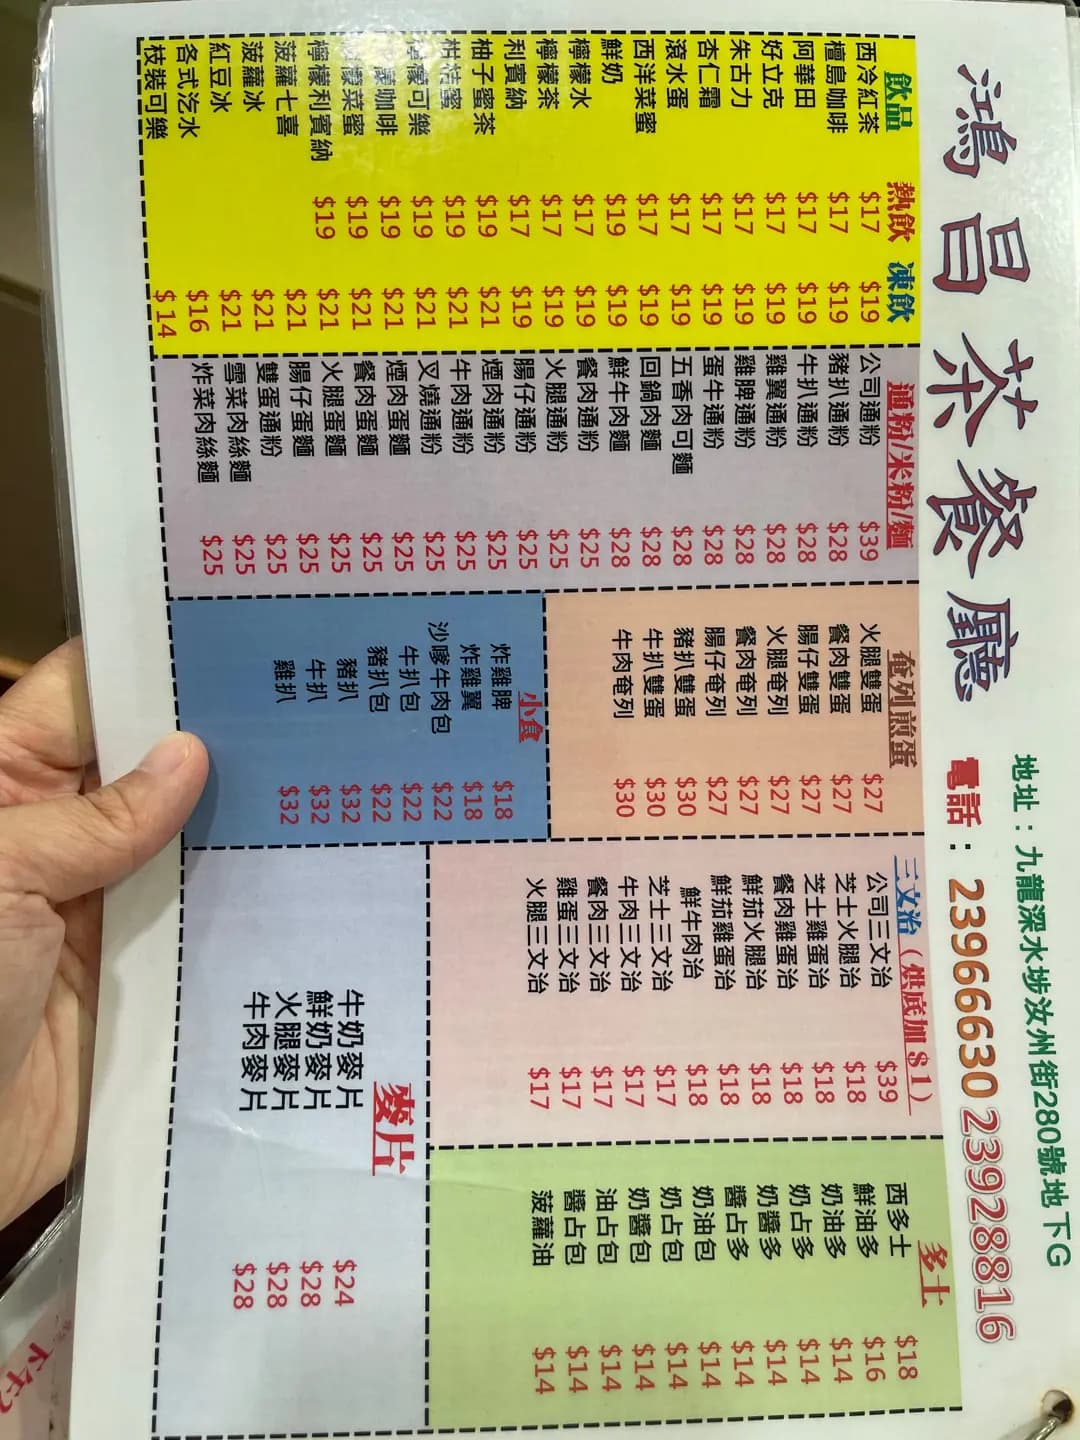 鴻昌茶餐廳
地址：九龍深水埗汝州街280號地下G
電話：23966630 23928816
飲品 熱飲 凍飲
西冷紅茶 $17 $19
檀島咖啡 $17 $19
阿華田 $17 $19
好立克 $17 $19
朱古力 $17 $19
杏仁霜 $17 $19
滾水蛋 $17 $19
西洋菜蜜 $17 $19
鮮奶 $19 $19
檸檬水 $17 $19
檸檬茶 $17 $19
利賓納 $17 $19
柚子蜜茶 $19 $21
柑桔蜜 $19 $21
檸檬可樂 $19 $21
檬咖啡 $19 $21
菜蜜 $19 $21
檸檬利賓納 $19 $21
菠蘿七喜 $21
菠蘿冰 $21
紅豆冰 $21
各式汔水 $16
枝裝可樂 $14
通粉/米粉/麵
公司通粉 $39
豬扒通粉 $28
牛扒通粉 $28
雞翼通粉 $28
雞脾通粉 $28
蛋牛通粉 $28
五香肉可麵 $28
回鍋肉麵 $28
鮮牛肉麵 $28
餐肉通粉 $25
火腿通粉 $25
腸仔通粉 $25
煙肉通粉 $25
牛肉通粉 $25
叉燒通粉 $25
煙肉蛋麵 $25
餐肉蛋麵 $25
火腿蛋麵 $25
腸仔蛋麵 $25
雙蛋通粉 $25
雪菜肉絲麵 $25
炸菜肉絲麵 $25
奄列煎蛋
火腿雙蛋 $27
餐肉雙蛋 $27
腸仔雙蛋 $27
火腿奄列 $27
餐肉奄列 $27
腸仔奄列 $27
豬扒雙蛋 $30
牛扒雙蛋 $30
牛肉奄列 $30
小食
炸雞脾 $18
炸雞翼 $18
沙嗲牛肉包 $22
牛扒包 $22
豬扒包 $22
豬扒 $32
牛扒 $32
雞扒 $32
三文治（烘底加$1）
公司三文治 $39
芝士火腿治 $18
芝士雞蛋治 $18
餐肉雞蛋治 $18
鮮茄火腿治 $18
鮮茄雞蛋治 $18
鮮牛肉治 $18
芝士三文治 $17
牛肉三文治 $17
餐肉三文治 $17
雞蛋三文治 $17
火腿三文治 $17
多士
西多士 $18
鮮油多 $16
奶油多 $14
奶占多 $14
奶醬多 $14
醬占多 $14
奶油包 $14
奶占包 $14
奶醬包 $14
油占包 $14
醬占包 $14
菠蘿油 $14
麥片
牛奶麥片 $24
鮮奶麥片 $28
火腿麥片 $28
牛肉麥片 $28
下午